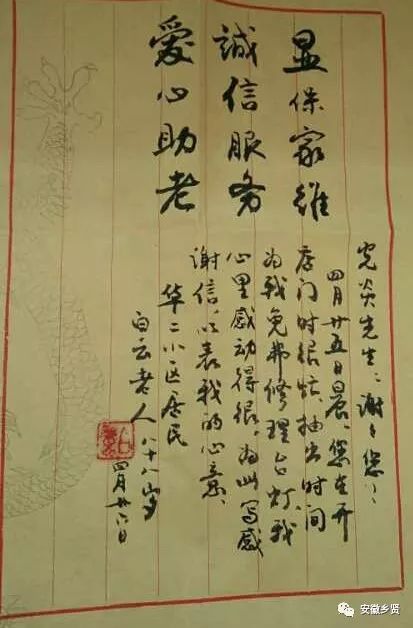 显保家维
誠信服务
爱心助老
光炎先生：谢谢您！
四月廿五日晨，您在开
店门时很忙，抽出时间
为我免费修理台灯，我
心里感动得很，为此写感
谢信以表我的心意。
华二小区居民
白云老人八十八岁
四月廿六日
安徽乡贤